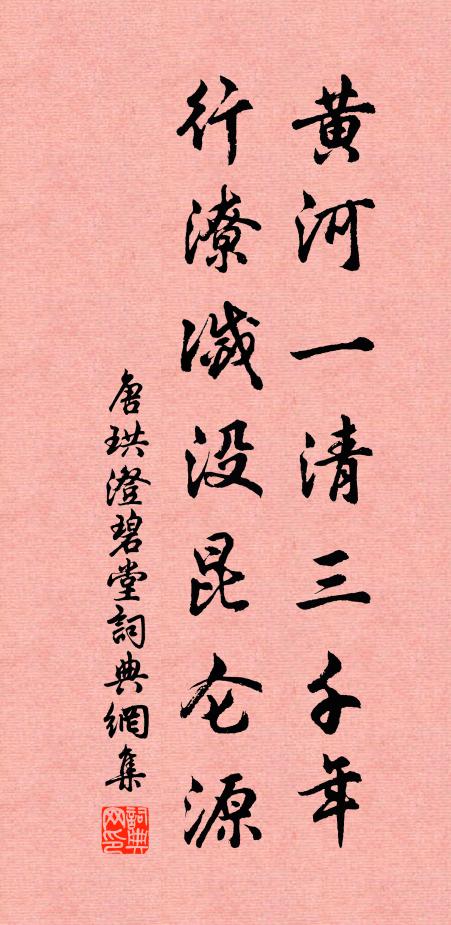 黄河一清三千年
行潦滅没昆仑源
唐珙澄碧堂詞典網集
詞典网印